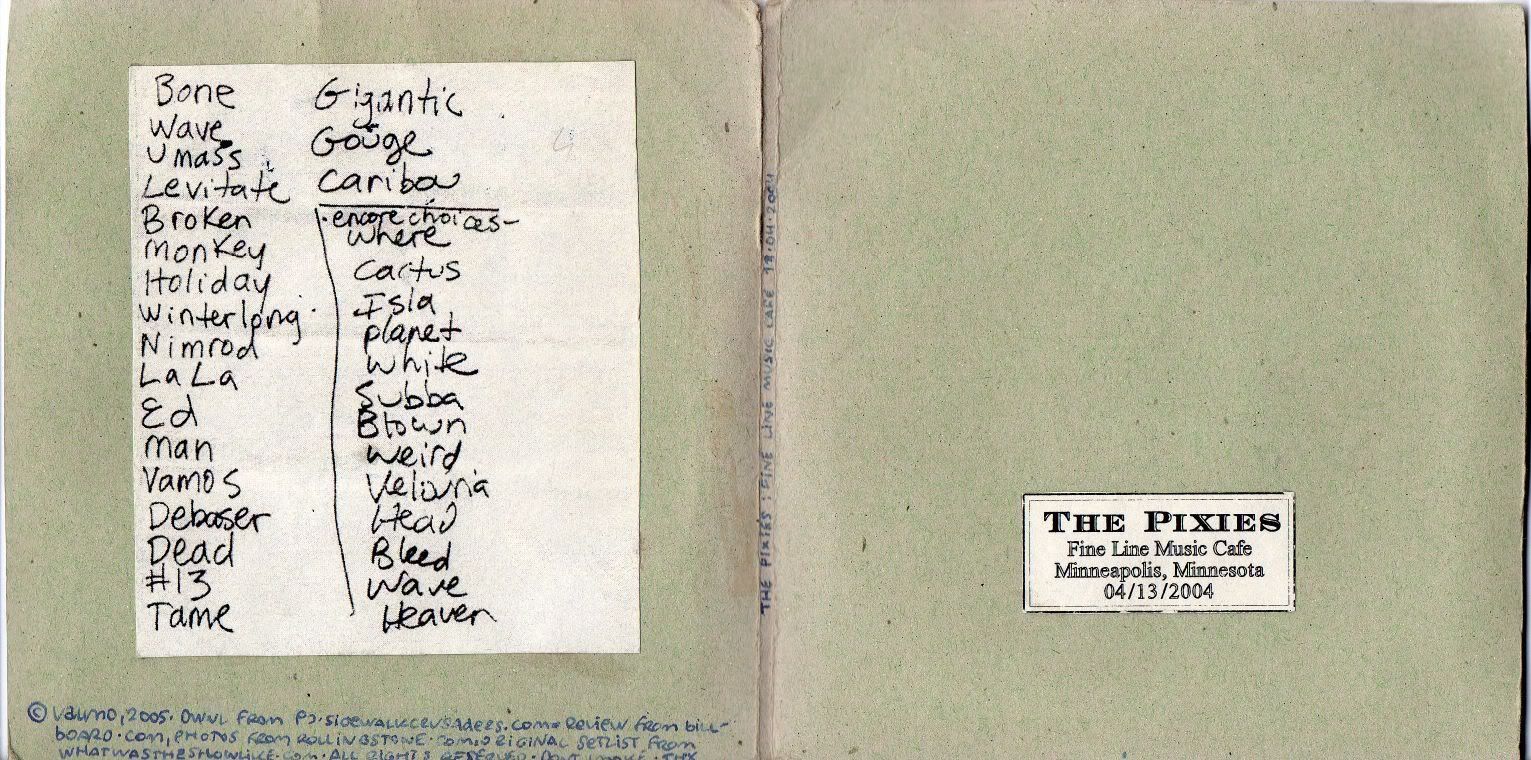 Bone
Wave
Umass
Levitate
Broken
Monkey
Holiday
Winterlong
Nimrod
LaLa
Ed
Man
Vamos
Debaser
Dead
#13
Tame
Gigantic
Gouge
Caribou
encore choices-
Where
Cactus
Isla
planet
White
Subba
Blown
Weird
Velouria
Head
Bleed
Wave
Heaven
© Valuno, 2005. DWNL FROM PJ.SIDEWALKCRUSADERS.COM REVIEW FROM BILL-
BOARD.COM, PHOTOS FROM ROLLINGSTONE.COM, ORIGINAL SETLIST FROM
WHATWASTHESHOWLIKE.COM. ALL RIGHTS RESERVED. DON'T MAKE
THE PIXIES: FINE LINE MUSIC CAFE 13.04.2004
THE PIXIES
Fine Line Music Cafe
Minneapolis, Minnesota
04/13/2004